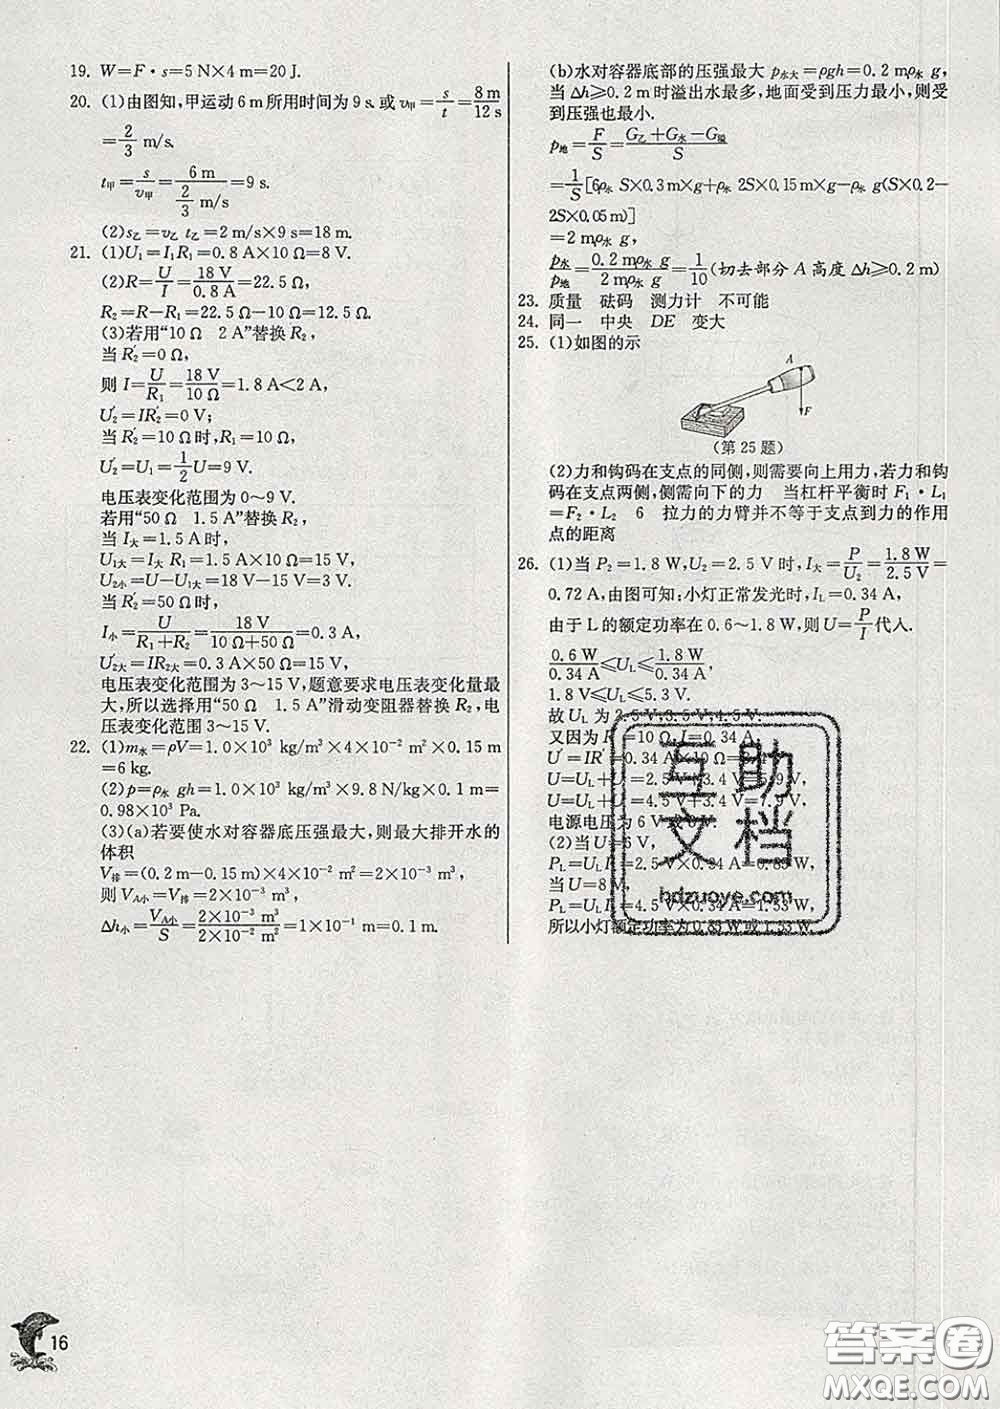 19. W=F·s=5 N×4 m=20 J.
20. (1)由图知,甲运动6 m所用时间为9 s.或v甲=s/t=8 m/12 s
=2/3 m/s.
t甲=s/v甲=6 m/(2/3 m/s)=9 s.
(2)s乙=v乙 t乙=2 m/s×9 s=18 m.
21. (1)U₁=I₁R₁=0.8 A×10 Ω=8 V.
(2)R=U/I=18 V/0.8 A=22.5 Ω,
R₂=R−R₁=22.5 Ω−10 Ω=12.5 Ω.
(3)若用“10 Ω 2 A”替换R₂,
当R₂′=0 Ω,
则I=U/R₁=18 V/10 Ω=1.8 A<2 A,
U₂′=IR₂′=0 V;
当R₂′=10 Ω时,R₁=10 Ω,
U₂′=U₁=1/2U=9 V.
电压表变化范围为0~9 V.
若用“50 Ω 1.5 A”替换R₂,
当I大=1.5 A时,
U₁大=I大 R₁=1.5 A×10 Ω=15 V,
U₂小=U−U₁大=18 V−15 V=3 V.
当R₂′=50 Ω时,
I小=U/(R₁+R₂)=18 V/(10 Ω+50 Ω)=0.3 A,
U₂′大=IR₂大=0.3 A×50 Ω=15 V,
电压表变化范围为3~15 V,题意要求电压表变化量最
大,所以选择用“50 Ω 1.5 A”滑动变阻器替换R₂,电
压表变化范围3~15 V.
22. (1)m水=ρV=1.0×10³ kg/m³×4×10⁻² m²×0.15 m
=6 kg.
(2)p=ρ水 gh=1.0×10³ kg/m³×9.8 N/kg×0.1 m=
0.98×10³ Pa.
(3)(a)若要使水对容器底压强最大,则最大排开水的
体积
V排=(0.2 m−0.15 m)×4×10⁻² m²=2×10⁻³ m³,
则VA小=V排=2×10⁻³ m³,
Δh小=VA小/S=2×10⁻³ m³/2×10⁻² m²=1×10⁻¹ m=0.1 m.
(b)水对容器底部的压强最大p水大=ρgh=0.2 mρ水 g,
当Δh≥0.2 m时溢出水最多,地面受到压力最小,则受
到压强也最小.
p地=F/S=(G乙+G水−G溢)/S
=1/S[6ρ水 S×0.3 m×g+ρ水 2S×0.15 m×g−ρ水 g(S×0.2−
2S×0.05 m)]
=2 mρ水 g,
p水/p地=0.2 mρ水 g/2 mρ水 g=1/10(切去部分A高度Δh≥0.2 m)
23. 质量 砝码 测力计 不可能
24. 同一 中央 DE 变大
25. (1)如图的示
A
F
(第25题)
(2)力和钩码在支点的同侧,则需要向上用力,若力和钩
码在支点两侧,侧需向下的力 当杠杆平衡时F₁·L₁
=F₂·L₂ 6 拉力的力臂并不等于支点到力的作用
点的距离
26. (1)当P₂=1.8 W,U₂=2.5 V时,I大=P/U₂=1.8 W/2.5 V=
0.72 A,由图可知:小灯正常发光时,I_L=0.34 A,
由于L的额定功率在0.6~1.8 W,则U=P/I代入.
0.6 W/0.34 A≤U_L≤1.8 W/0.34 A,
1.8 V≤U_L≤5.3 V.
故U_L为2.5 V,3.5 V,4.5 V.
又因为R=10 Ω,I=0.34 A.
U′=IR′=0.34 A×10 Ω=3.4
U=U_L+U=2.5 V+3.4 V=5.9 V,
U=U_L+U=4.5 V+3.4 V=7.9 V,
电源电压为6 V或8 V.
(2)当U=6 V,
P_L=U_L I=2.5 V×0.34 A=0.85 W,
当U=8 V,
P_L=U_L I=4.5 V×0.34 A=1.53 W,
所以小灯额定功率为0.85 W或1.53 W.
互助
文档
hdzuoye.com
16
答案圈
MXQE.COM